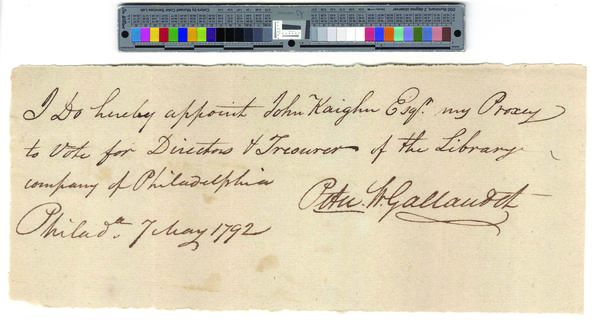 I Do hereby appoint John Kaighn Esqr. my Proxey
to Vote for Directors & Tresurer of the Library
company of Philadelphia
Peter W. Gallaudet
Philada. 7 May 1792